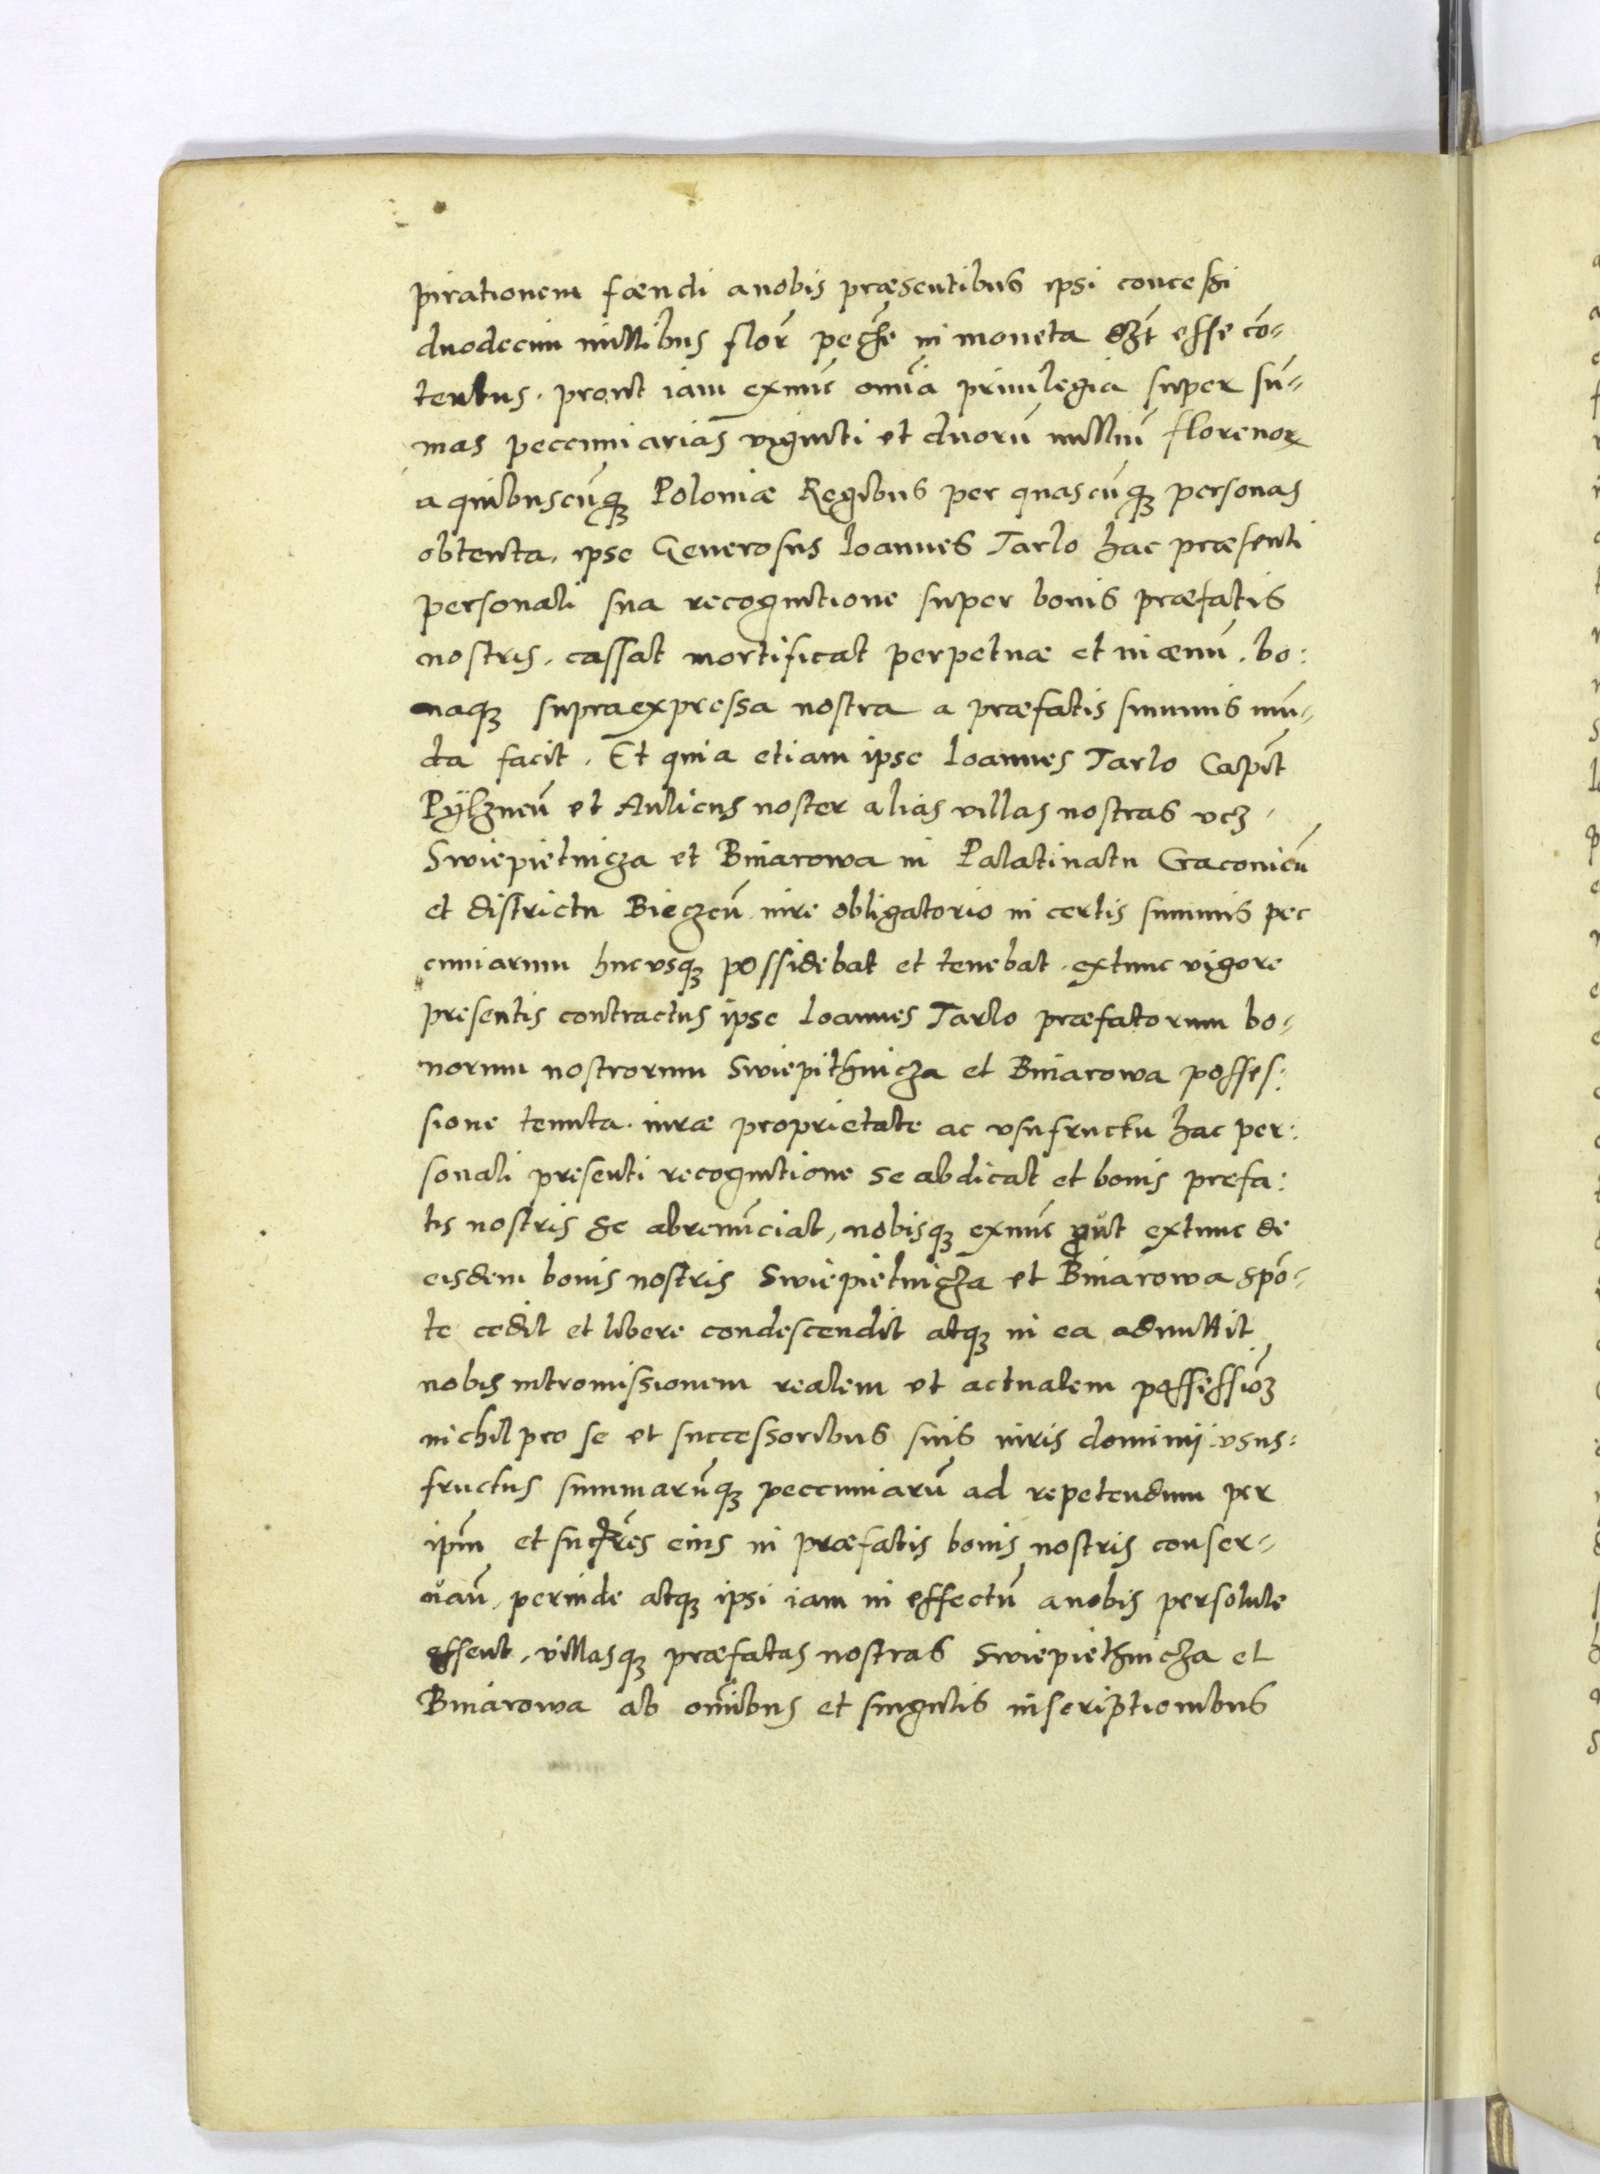 pirationem fœndi anobis præsentibus ipsi concessi
duodecim millibus flor̃ pec̃he in moneta esse cõ-
tentus. prout iam exnũc omĩa priuilegia super sũ-
mas peccuniarias viginti et duorũ milliũ florenoꝝ
a quibuscũqꝫ Poloniæ Regibus per quascũqꝫ personas
obtenta, ipse Generosus Ioannes Tarlo hac præsenti
personali sua recognitione super bonis præfatis
nostris, cassat mortificat perpetuæ et in æuũ. bo:
naqꝫ supraexpressa nostra a præfatis summis mũ-
da facit. Et quia etiam ipse Ioannes Tarlo Capit̃
Pÿlzneñ et Aulicus noster alias villas nostras vcꝫ
Swiepietnicza et Binarowa in Palatinatu Cracouieñ
et districtu Bieczeñ iure obligatorio in certis summis pec
cuniarum hucvsqꝫ possidebat et tenebat. extunc vigore
presentis contractus ipse Ioannes Tarlo præfatorum bo-
norum nostrorum Swiepithnicza et Binarowa posses:
sione tenuta. iuræ proprietate ac vsufructu hac per:
sonali presenti recognitione se abdicat et bonis præfa:
tis nostris se abrenũciat, nobisqꝫ exnũc ꝓut extunc de
eisdem bonis nostris Swiepietnicza et Binarowa spõ-
te cedit et libere condescendit atqꝫ in ea admittit
nobis intromissionem realem et actualem possessioẽꝫ
nichil pro se et successoribus suis iuris dominij vsus:
fructus summarũqꝫ peccuniarũ ad repetendum per
ipm̃ et succr̃es eius in præfatis bonis nostris conser-
uañ. perinde atqꝫ ipsi iam in effectũ anobis persolute
essent. villasqꝫ præfatas nostras Swiepiethnicza et
Binarowa ab om̃ibus et singulis inscriptionibus